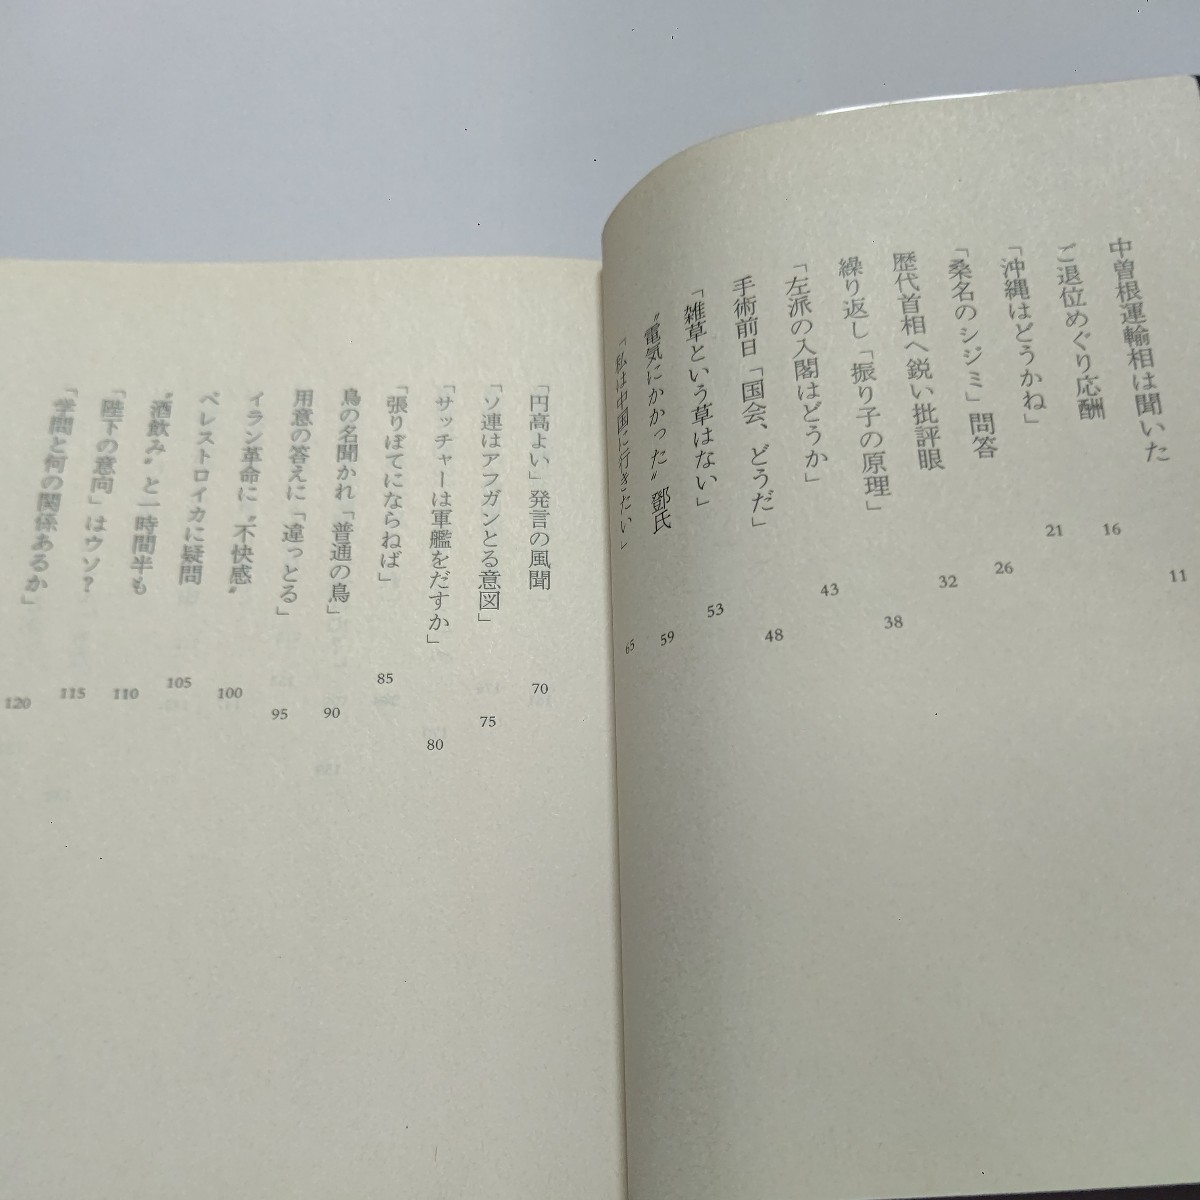 中曽根運輸相は聞いた 11
ご退位めぐり応酬 16
「沖縄はどうかね」 21
「桑名のシジミ」問答 26
歴代首相へ鋭い批評眼 32
繰り返し「振り子の原理」 38
「左派の入閣はどうか」 43
手術前日「国会、どうだ」 48
「雑草という草はない」 53
〝電気にかかった〟鄧氏 59
「私は中国に行きたい」 65
「円高よい」発言の風聞 70
「ソ連はアフガンとる意図」 75
「サッチャーは軍艦をだすか」 80
「張りぼてにならねば」 85
鳥の名聞かれ「普通の鳥」 90
用意の答えに「違っとる」 95
イラン革命に〝不快感〟 100
ペレストロイカに疑問 105
〝酒飲み〟と一時間半も 110
「陛下の意向」はウソ？ 115
「学問と何の関係あるか」 120